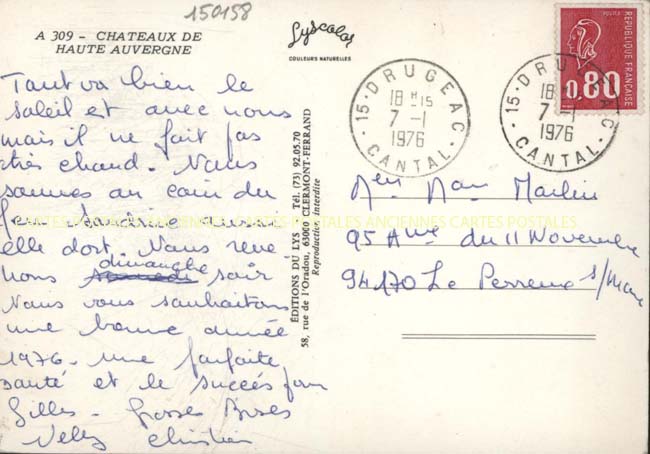 150158
A 309 - CHATEAUX DE
HAUTE AUVERGNE
Lyscolor
COULEURS NATURELLES
REPUBLIQUE FRANÇAISE
POSTES
0,80
15 - DRUGEAC
18 H 15
7 - 1
1976
CANTAL
15 - DRUGEAC
18 H
7 - 1
1976
CANTAL
Tout va bien le
soleil est avec nous
mais il ne fait pas
très chaud. Nous
sommes au coin du
feu
elle dort. Nous reve
nons dimanche soir
Nous vous souhaitons
une bonne année
1976 - une parfaite
santé et le succès pour
Gilles - Grosses Bises
Christian
ÉDITIONS DU LYS Tél. (73) 92.05.70
58, rue de l'Oradou, 63000 CLERMONT-FERRAND
Reproduction interdite
95 Ave du 11 Novembre
94170 Le Perreux s/Marne
CARTES POSTALES ANCIENNES CARTES POSTALES ANCIENNES CARTES POSTALES